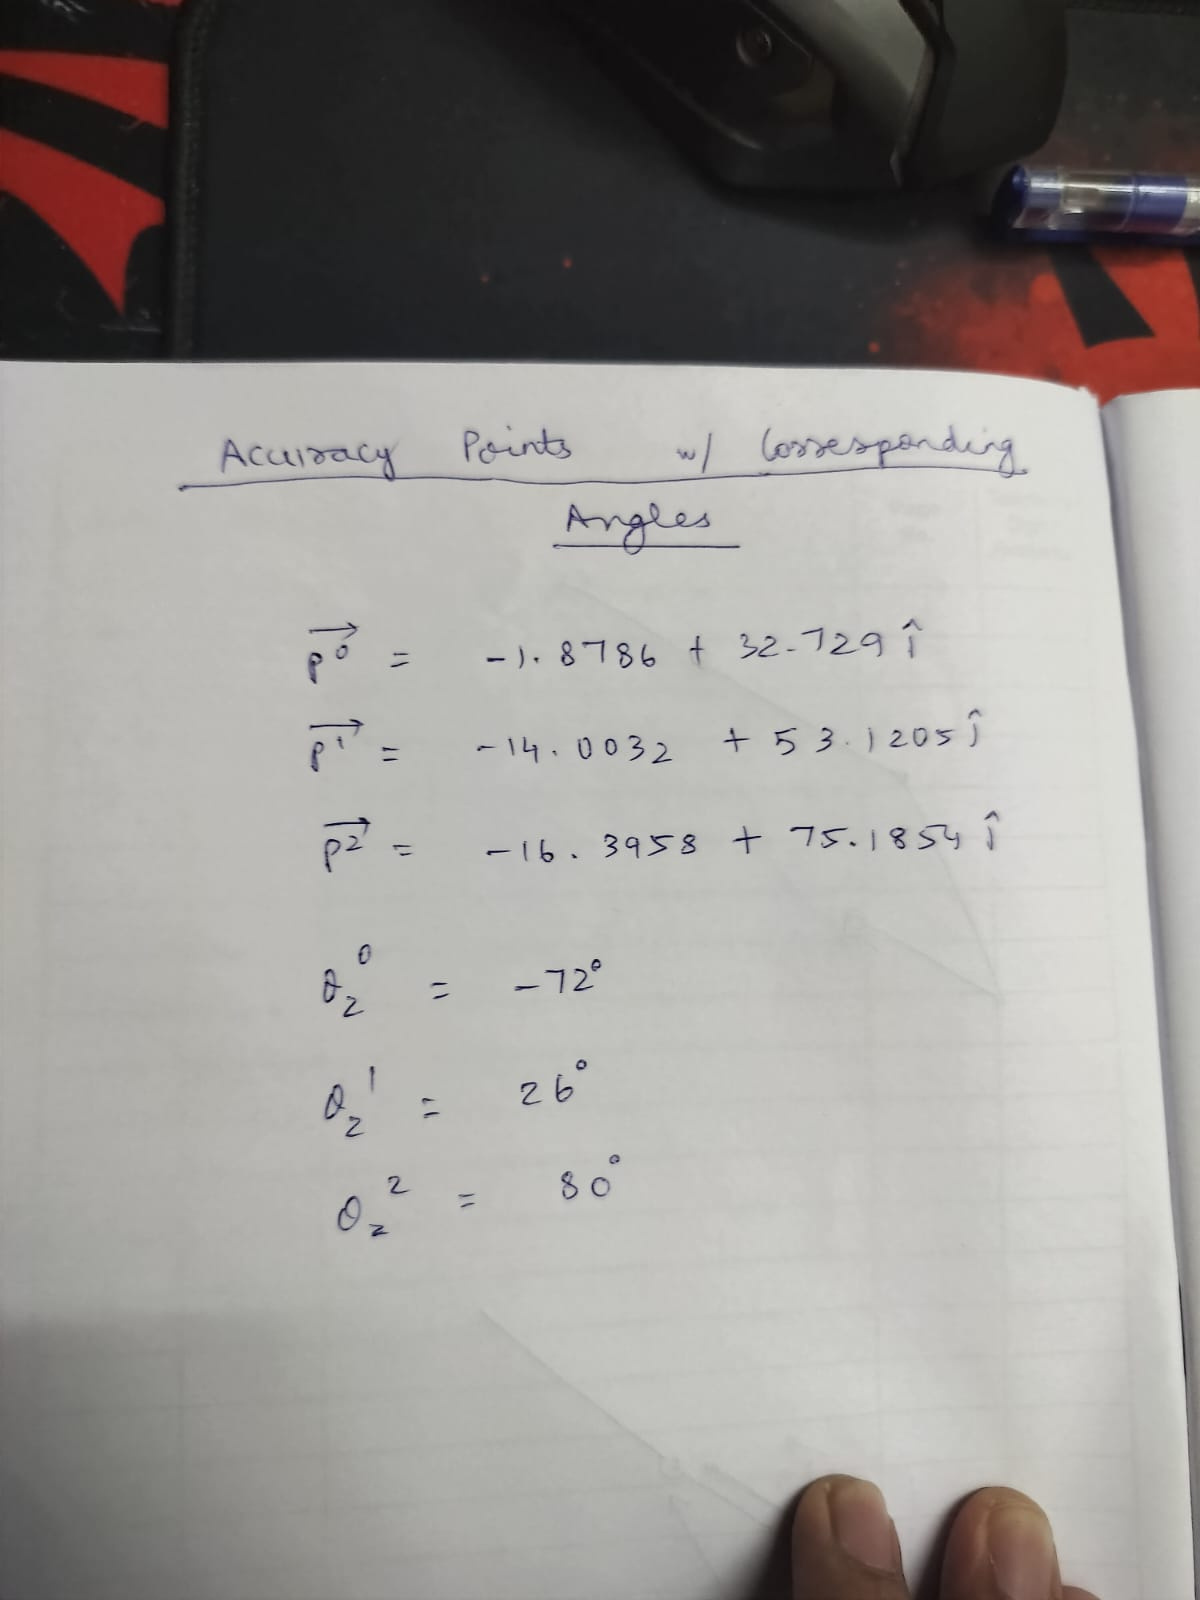 Accuracy Points w/ Corresponding
Angles
p⁰ = -1.8786 + 32.729 î
p¹ = -14.0032 + 53.1205 î
p² = -16.3958 + 75.1854 î
θ₂⁰ = -72°
θ₂¹ = 26°
θ₂² = 80°